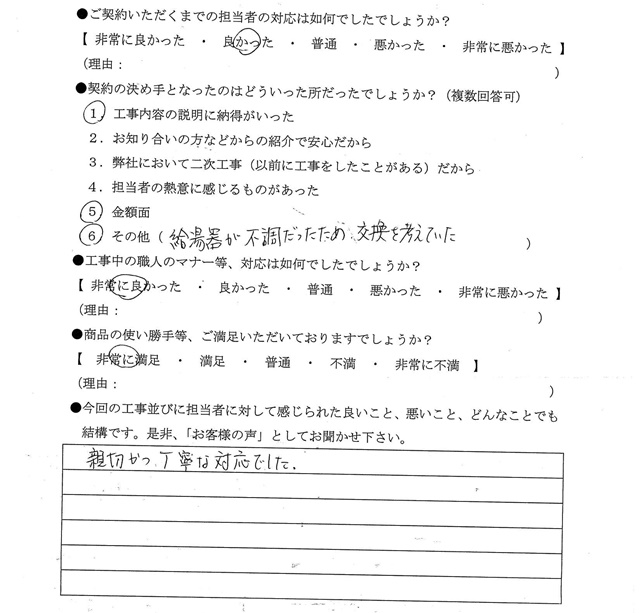 ●ご契約いただくまでの担当者の対応は如何でしたでしょうか？
【 非常に良かった ・ 良かった ・ 普通 ・ 悪かった ・ 非常に悪かった 】
（理由： ）
●契約の決め手となったのはどういった所だったでしょうか？（複数回答可）
１．工事内容の説明に納得がいった
２．お知り合いの方などからの紹介で安心だから
３．弊社において二次工事（以前に工事をしたことがある）だから
４．担当者の熱意に感じるものがあった
５ 金額面
６ その他（ 給湯器が不調だったため、交換を考えていた ）
●工事中の職人のマナー等、対応は如何でしたでしょうか？
【 非常に良かった ・ 良かった ・ 普通 ・ 悪かった ・ 非常に悪かった 】
（理由： ）
●商品の使い勝手等、ご満足いただいておりますでしょうか？
【 非常に満足 ・ 満足 ・ 普通 ・ 不満 ・ 非常に不満 】
（理由： ）
●今回の工事並びに担当者に対して感じられた良いこと、悪いこと、どんなことでも
結構です。是非、「お客様の声」としてお聞かせ下さい。
親切かつ、丁寧な対応でした.